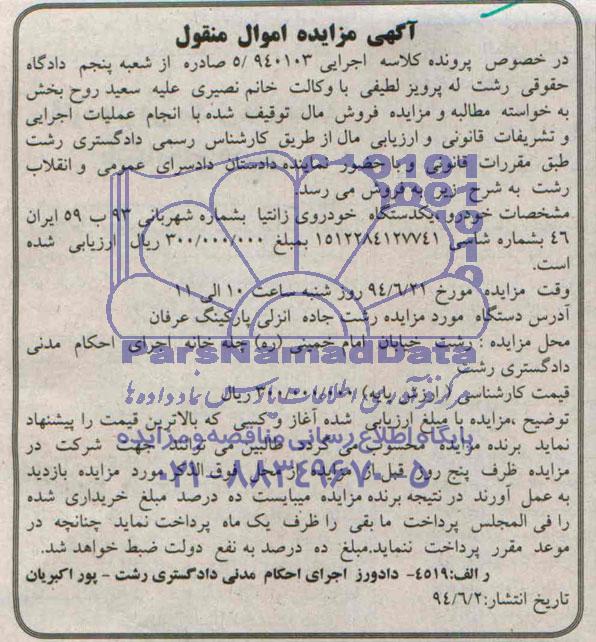 آگهی مزایده اموال منقول
در خصوص پرونده کلاسه اجرایی ۹۴۰۱۰۳ /۵ صادره از شعبه پنجم دادگاه
حقوقی رشت له پرویز لطیفی با وکالت خانم نصیری علیه سعید روح بخش
به خواسته مطالبه و مزایده فروش مال توقیف شده با انجام عملیات اجرایی
و تشریفات قانونی و ارزیابی مال از طریق کارشناس رسمی دادگستری رشت
طبق مقررات قانونی و با حضور نماینده دادستان دادسرای عمومی و انقلاب
رشت به شرح زیر به فروش می رسد.
مشخصات خودرو: یکدستگاه خودروی زانتیا بشماره شهربانی ۹۳ ب ۵۹ ایران
۴۶ بشماره شاسی ۱۵۱۲۲۸۴۱۲۷۷۴۱ بمبلغ ۳۰۰/۰۰۰/۰۰۰ ریال ارزیابی شده
است.
وقت مزایده مورخ ۹۴/۶/۲۱ روز شنبه ساعت ۱۰ الی ۱۱
آدرس دستگاه مورد مزایده رشت جاده انزلی پارکینگ عرفان
محل مزایده : رشت خیابان امام خمینی (ره) جله خانه اجرای احکام مدنی
دادگستری رشت
قیمت کارشناسی (ارزش پایه) ۳۰۰/۰۰۰/۰۰۰ ریال
توضیح ،مزایده با مبلغ ارزیابی شده آغاز و کسی که بالاترین قیمت را پیشنهاد
نماید برنده مزایده محسوب می گردد طالبین می توانند جهت شرکت در
مزایده ظرف پنج روز قبل از مزایده از محل فوق الذکر مورد مزایده بازدید
به عمل آورند در نتیجه برنده مزایده میبایست ده درصد مبلغ خریداری شده
را فی المجلس پرداخت ما بقی را ظرف یک ماه پرداخت نماید چنانچه در
موعد مقرر پرداخت ننماید.مبلغ ده درصد به نفع دولت ضبط خواهد شد.
ر الف:۴۵۱۹- دادورز اجرای احکام مدنی دادگستری رشت - پور اکبریان
تاریخ انتشار:۹۴/۶/۲
ParsNamadData
مرکز فرآوری اطلاعات پارس نماد داده ها
پایگاه اطلاع رسانی مناقصه و مزایده
۰۲۱-۸۸۳۴۹۶۷۰-۵